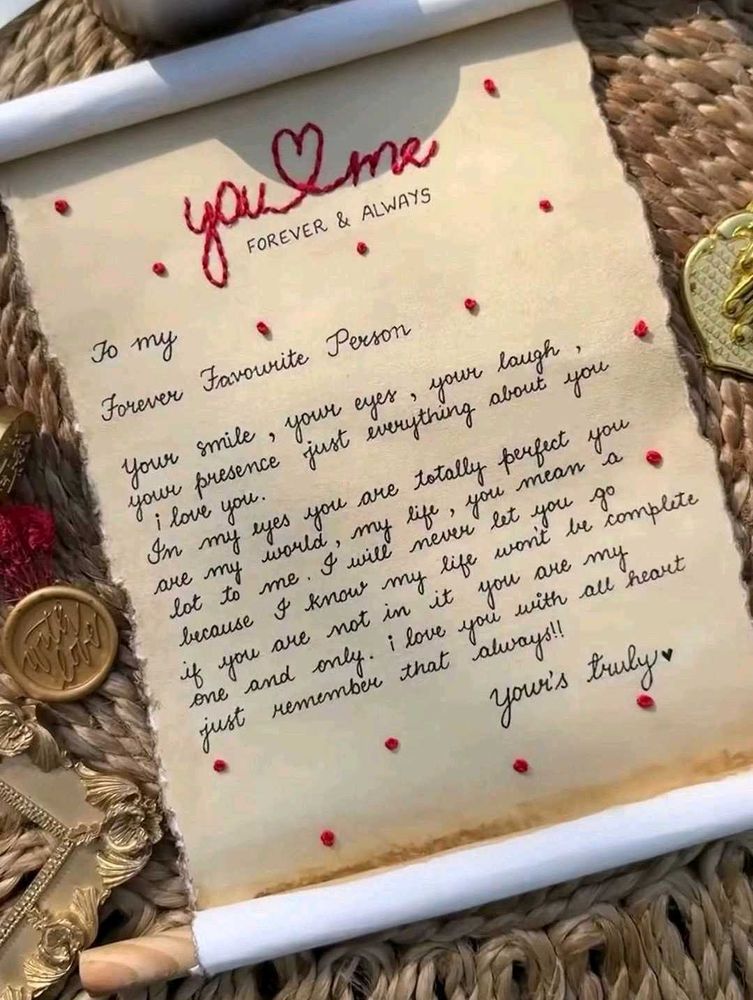 you me
FOREVER & ALWAYS
To my
Forever Favourite Person
Your smile, your eyes, your laugh,
your presence just everything about you
i love you.
In my eyes you are totally perfect you
are my world, my life, you mean a
lot to me. I will never let you go
because I know my life won't be complete
if you are not in it you are my
one and only. i love you with all heart
just remember that always!!
Your's truly♥
with love